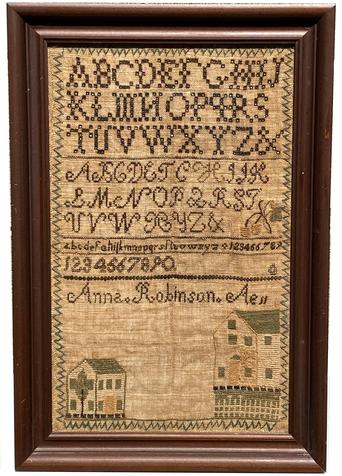 ABCDEFGHIJ
KLMNOPQRS
TUVWXYZ&
ABCDEFGHIJK
LMNOPQRST
UVWXYZ&
abcdefghijklmnopqrstuvwxyz 123456789
1234567890
Anna Robinson Ae11